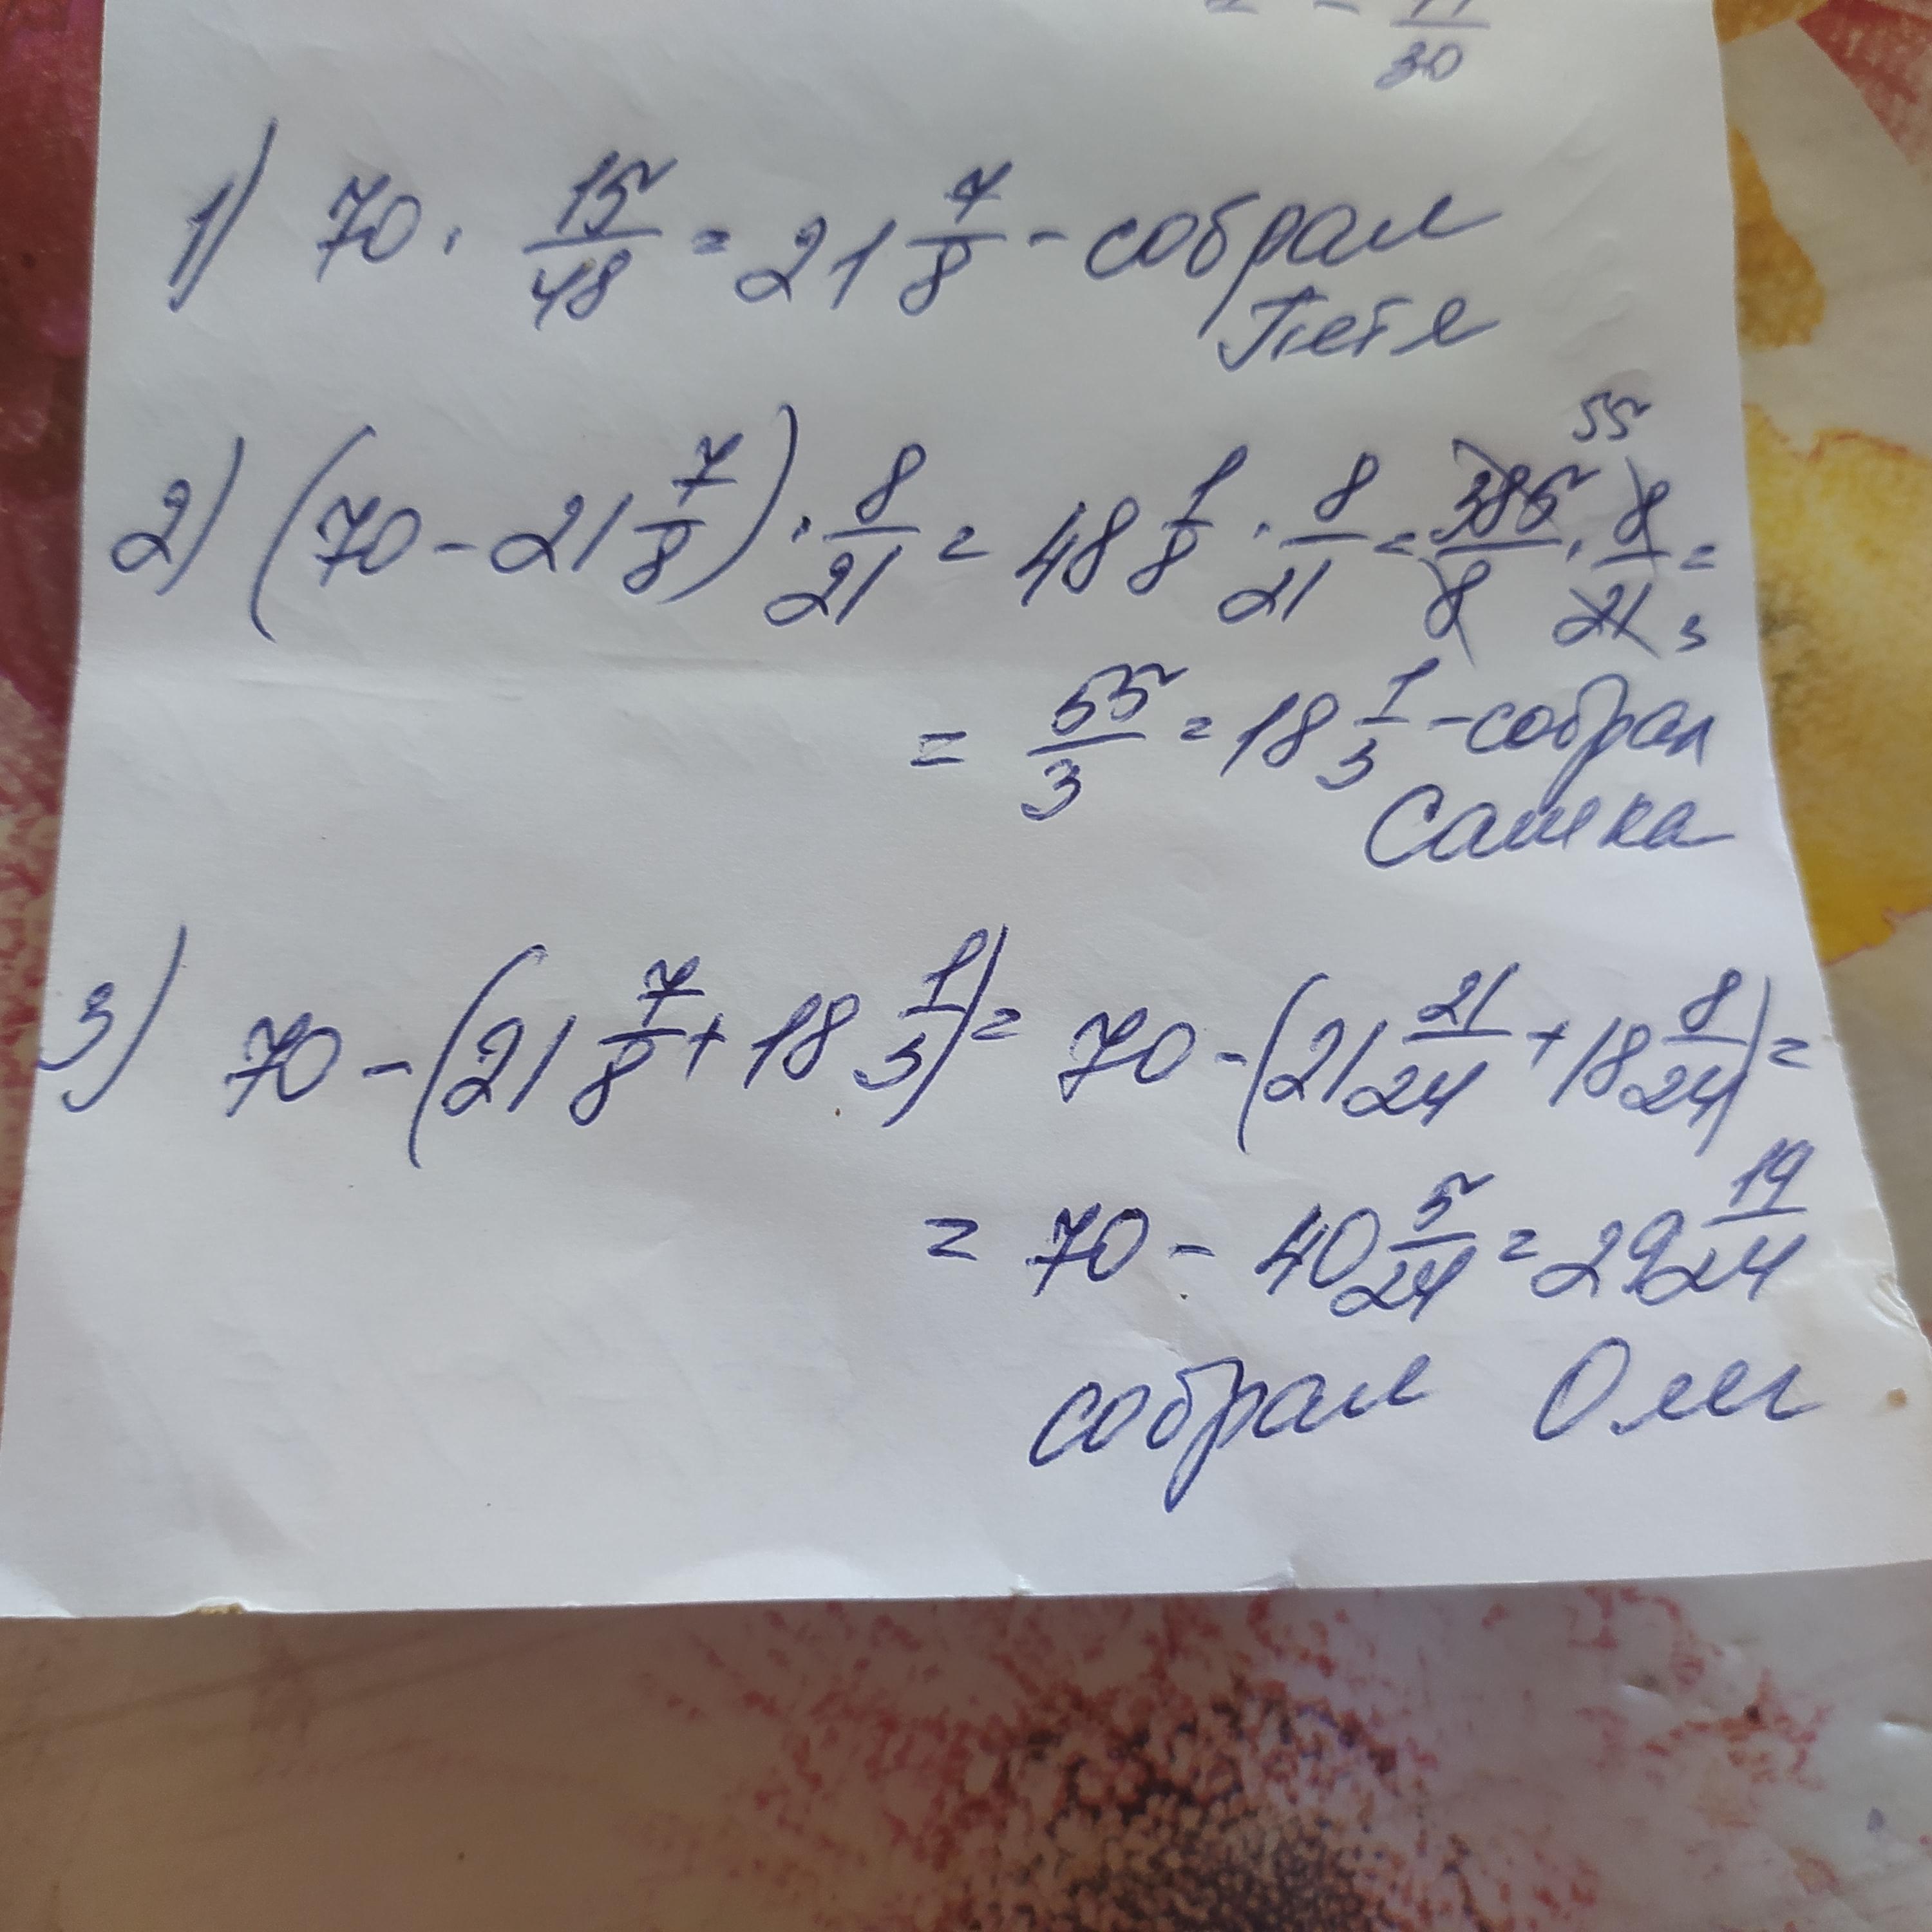 30
1) 70 · 15/48 = 21 7/8 - собрал
Петя
55
2) (70 - 21 7/8) · 8/21 = 48 1/8 · 8/21 = 385/8 · 8/21 =
3
= 55/3 = 18 1/3 - собрал
Сашка
3) 70 - (21 7/8 + 18 1/3) = 70 - (21 21/24 + 18 8/24) =
= 70 - 40 5/24 = 29 19/24
собрал Олег